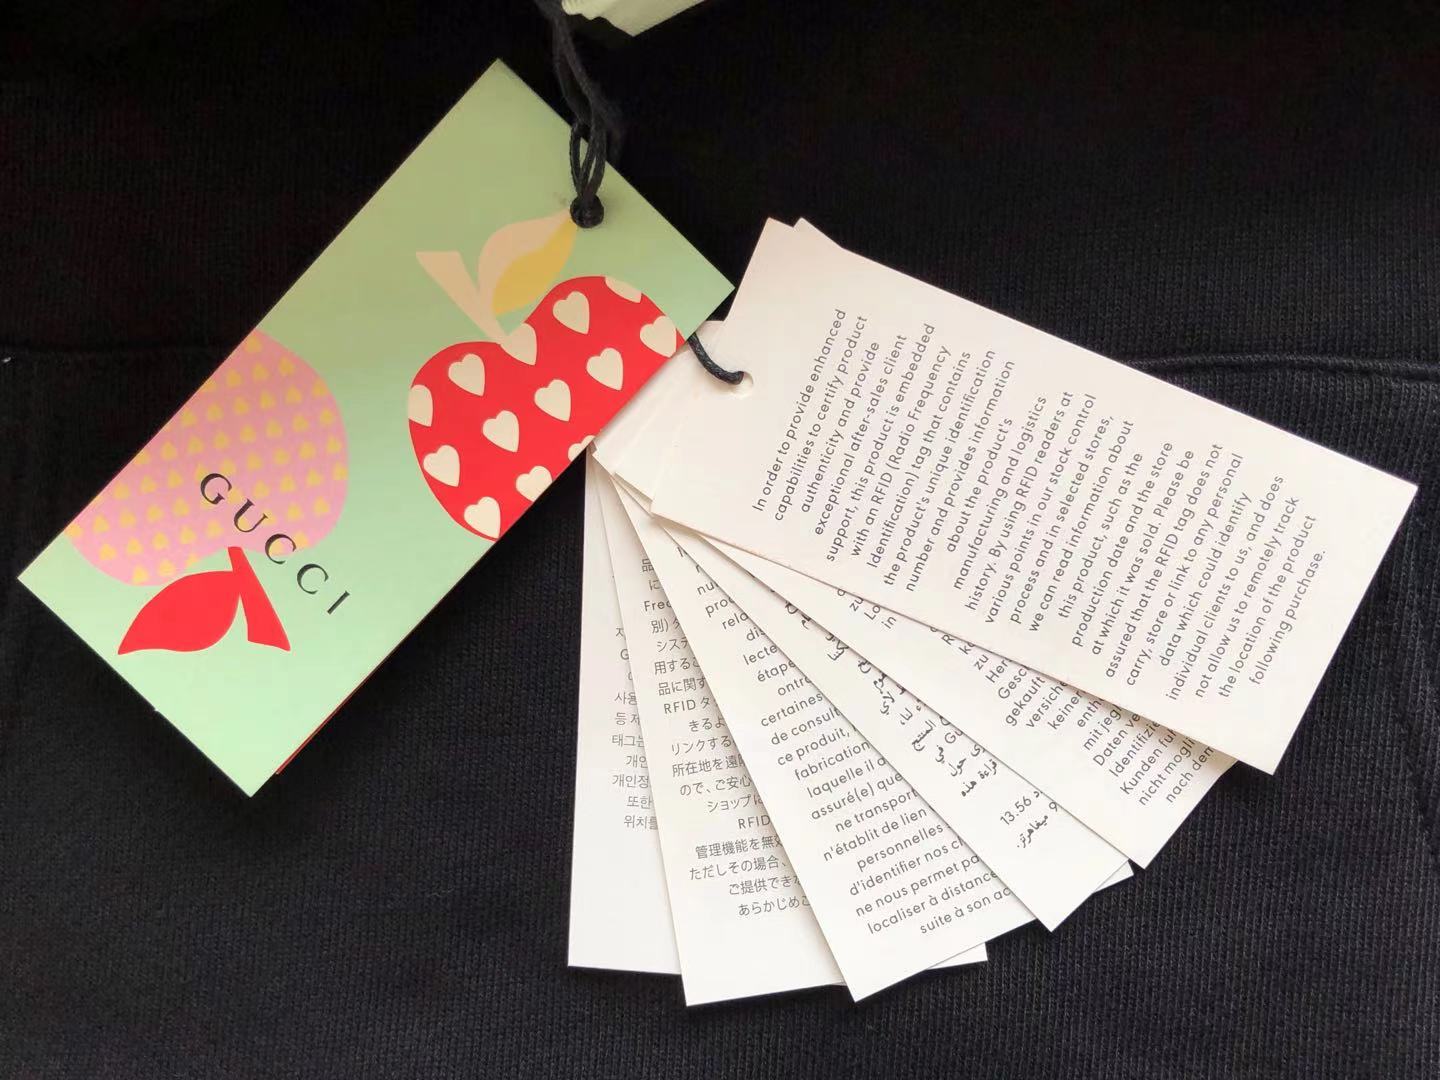 GUCCI
In order to provide enhanced
capabilities to certify product
authenticity and provide
exceptional after-sales client
support, this product is embedded
with an RFID (Radio Frequency
Identification) tag that contains
the product's unique identification
number and provides information
about the product's
manufacturing and logistics
history. By using RFID readers at
various points in our stock control
process and in selected stores,
we can read information about
this product, such as the
production date and the store
at which it was sold. Please be
assured that the RFID tag does not
carry, store or link to any personal
data which could identify
individual clients to us, and does
not allow us to remotely track
the location of the product
following purchase.
gekauft
keinen
mit
Daten
Kunden
nicht
nach
قراءة هذه
13.56
ميغاهرتز.
étape
certaines
de consul
ce produit,
fabrication
laquelle il
assuré(e) que
ne transpor
n'établit de lien
personnelles
d'identifier nos
ne nous permet pa
localiser à distance
suite à son ac
品
に
Fre
別)
システ
用するこ
品に関す
RFID タ
きるよ
リンクする
所在地を遠
ので、ご安心
ショップに
RFID
管理機能を無効
ただしその場合、
ご提供でき
あらかじめご
사용
등 제
태그는
개인
개인정
또한
위치를